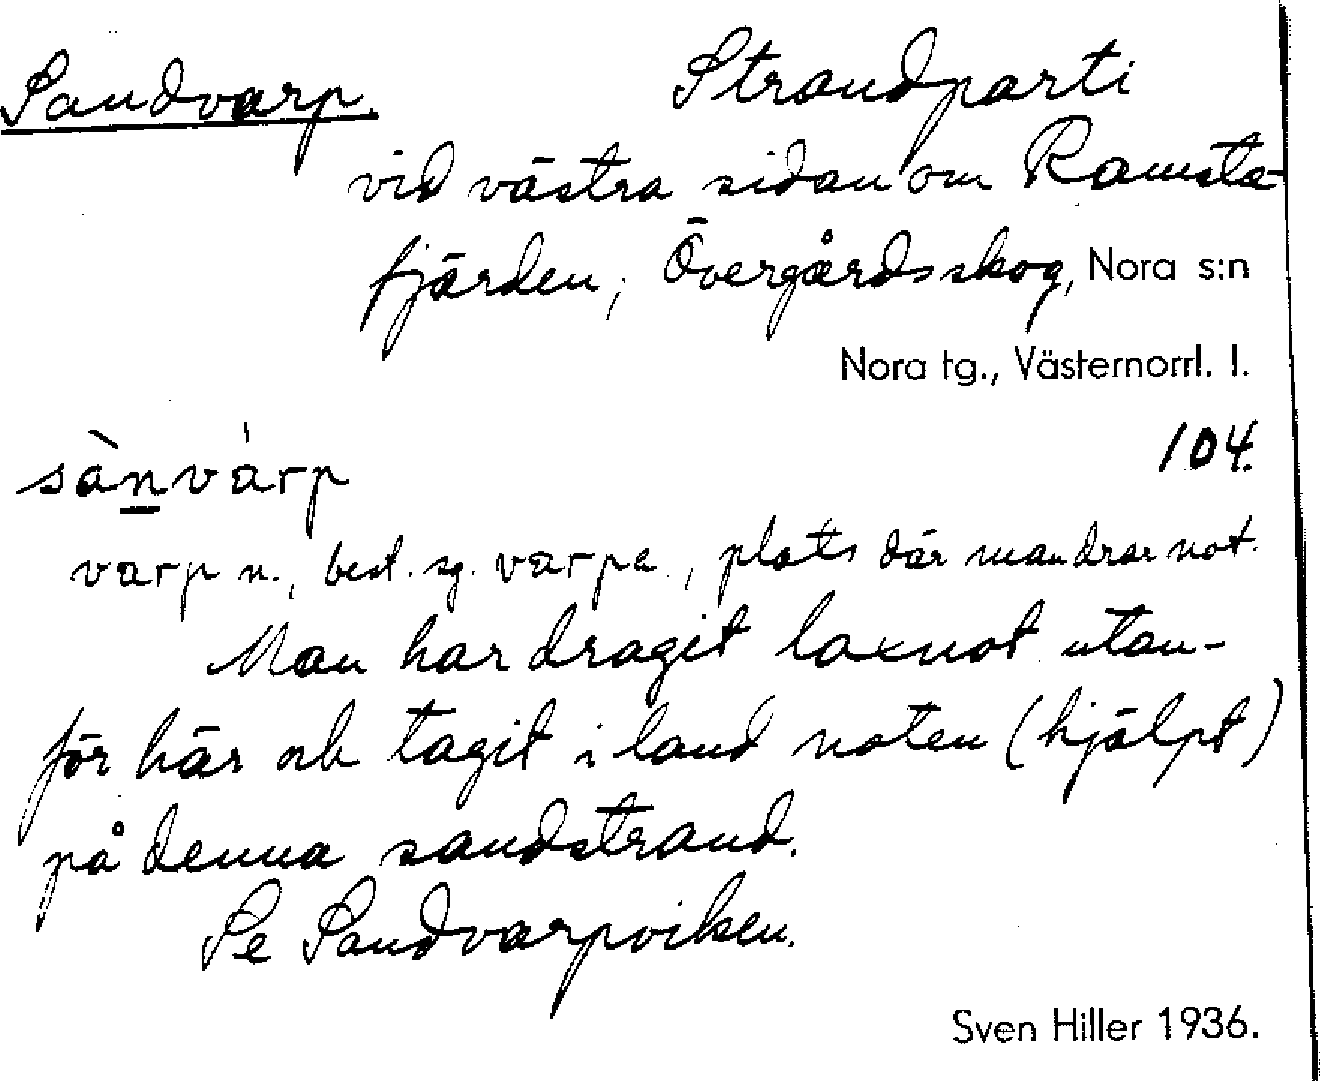 Sandvarp. Strandparti
vid västra sidan om Ramsta-
fjärden, Övergårdsskog, Nora s:n
Nora tg., Västernorrl. l.
104.
sànvárp
varp n., best. sg. varpe., plats där man drar not.
Man har dragit laxnot utan-
för här och tagit i land noten (hjälpt)
på denna sandstrand.
Se Sandvarpviken.
Sven Hiller 1936.